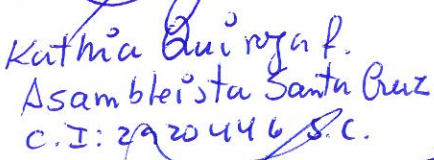 Kathia Quiroga f.
Asambleista Santa Cruz
C.I: 2920446 S.C.